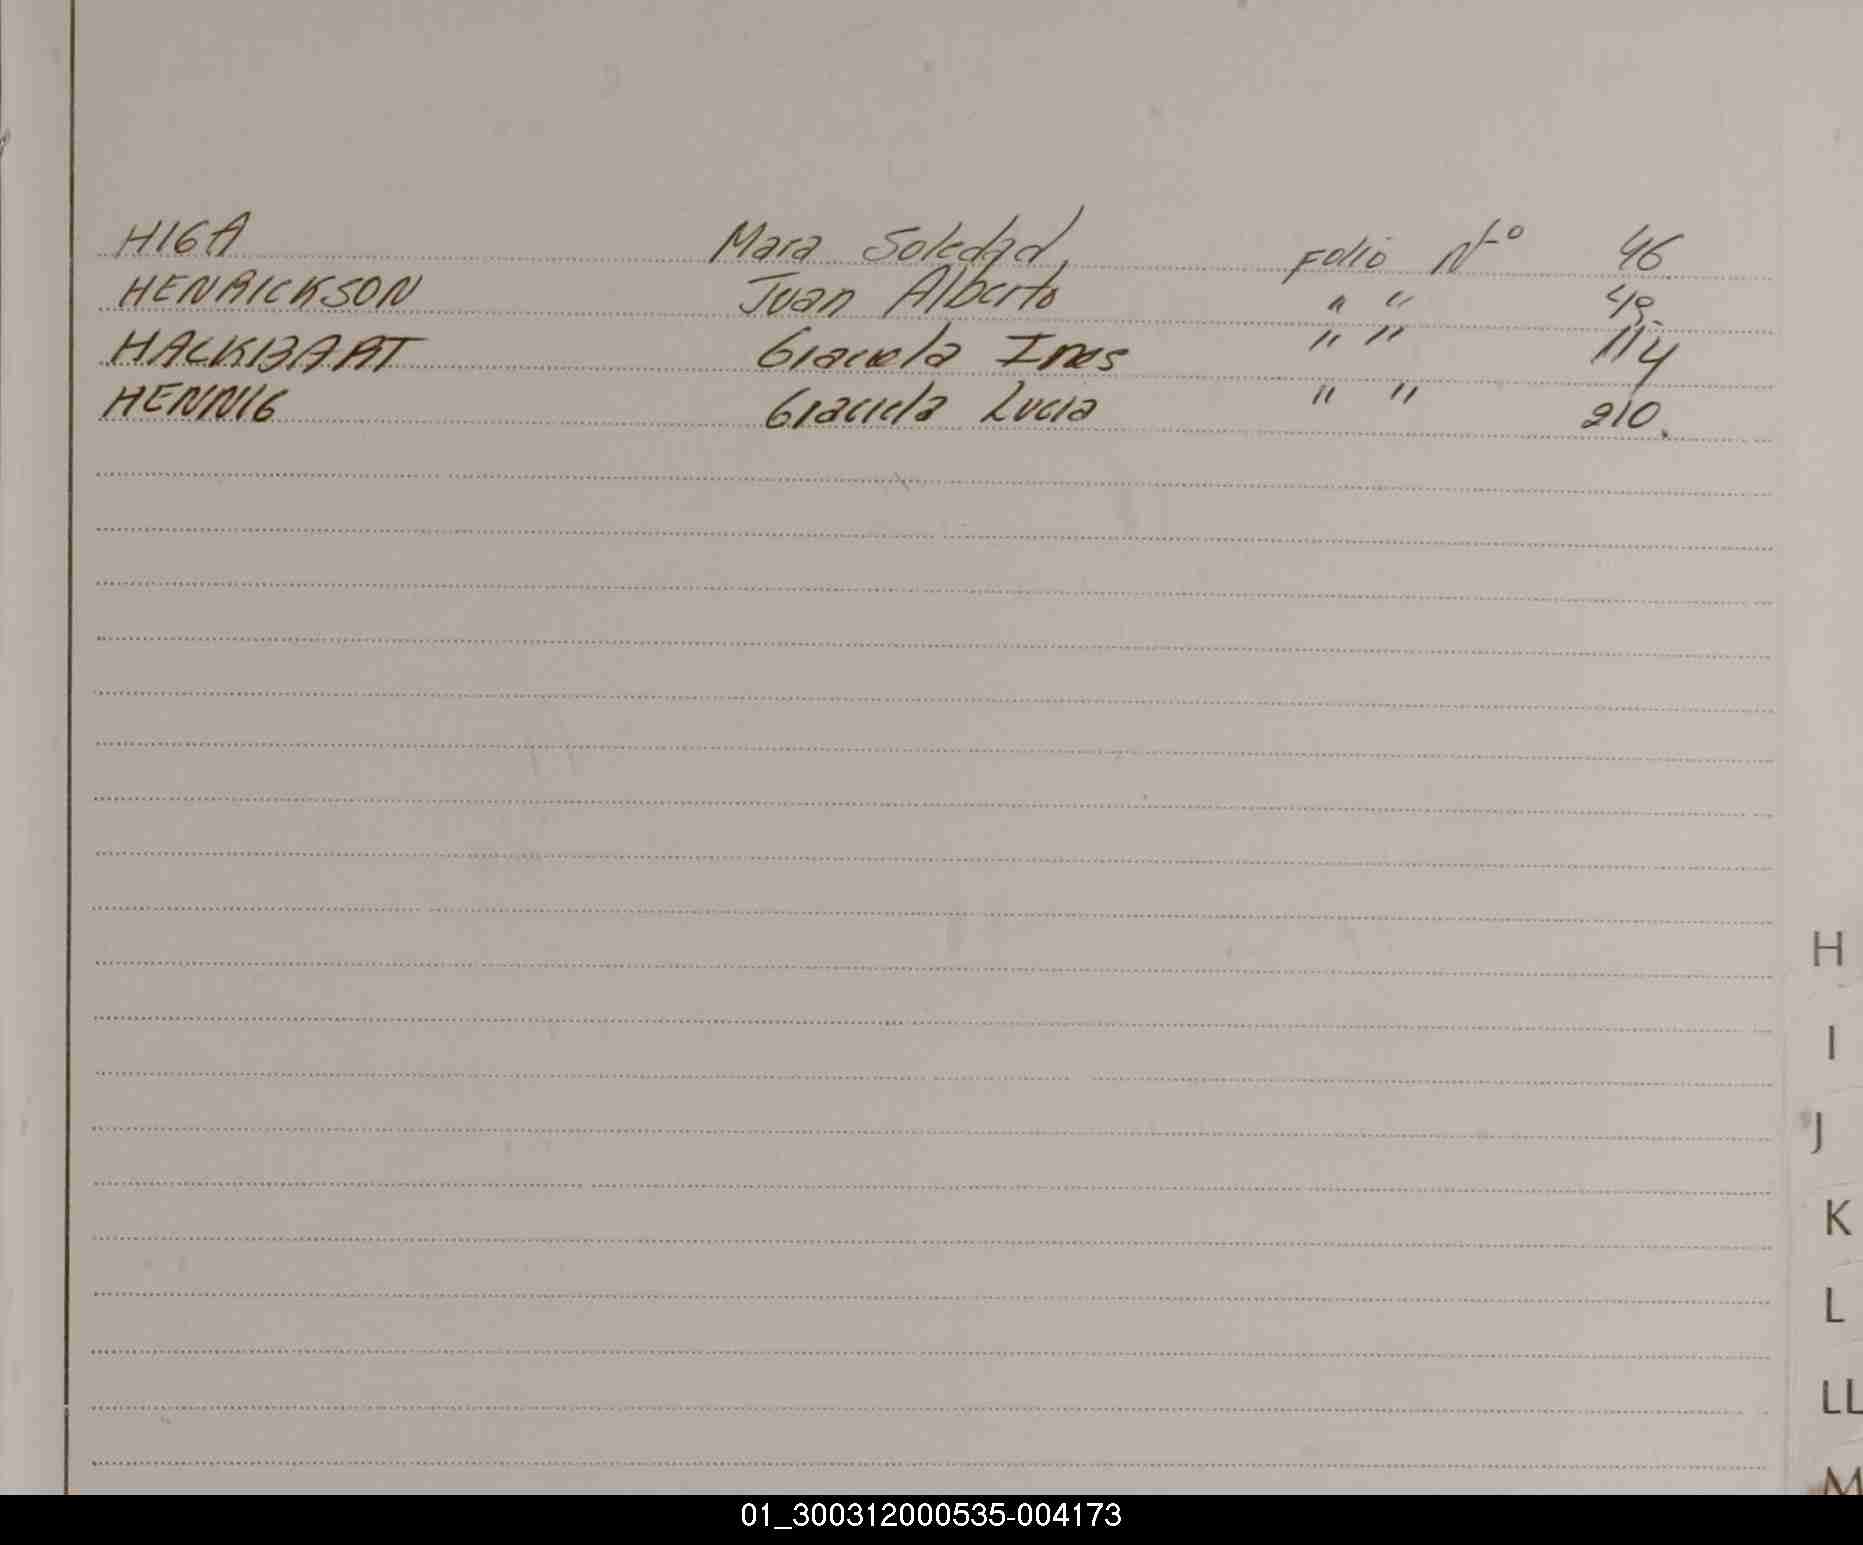 HIGA Mara Soledad, Folio Nº 46
HENRICKSON Juan Alberto " " 49.
HACKBART Graciela Ines " " 114
HENNIG Graciela Lucia " " 210.
H
I
J
K
L
LL
M
01_300312000535-004173